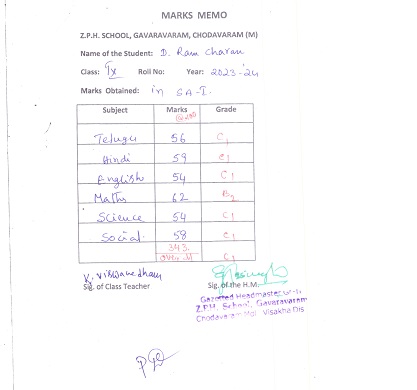 MARKS MEMO
Z.P.H. SCHOOL, GAVARAVARAM, CHODAVARAM (M)
Name of the Student: D. Ram Charan
Class: IX Roll No: Year: 2023-'24
Marks Obtained: in SA-I.
Subject Marks Grade
Telugu 56 C1
Hindi 59 C1
English 54 C1
Maths 62 B2
Science 54 C1
Social 58 C1
343 C1
Sig. of Class Teacher Sig. of the H.M.
Gazetted Headmaster
Z.P.H. School, Gavaravaram
Chodavaram Mdl Visakha Dis